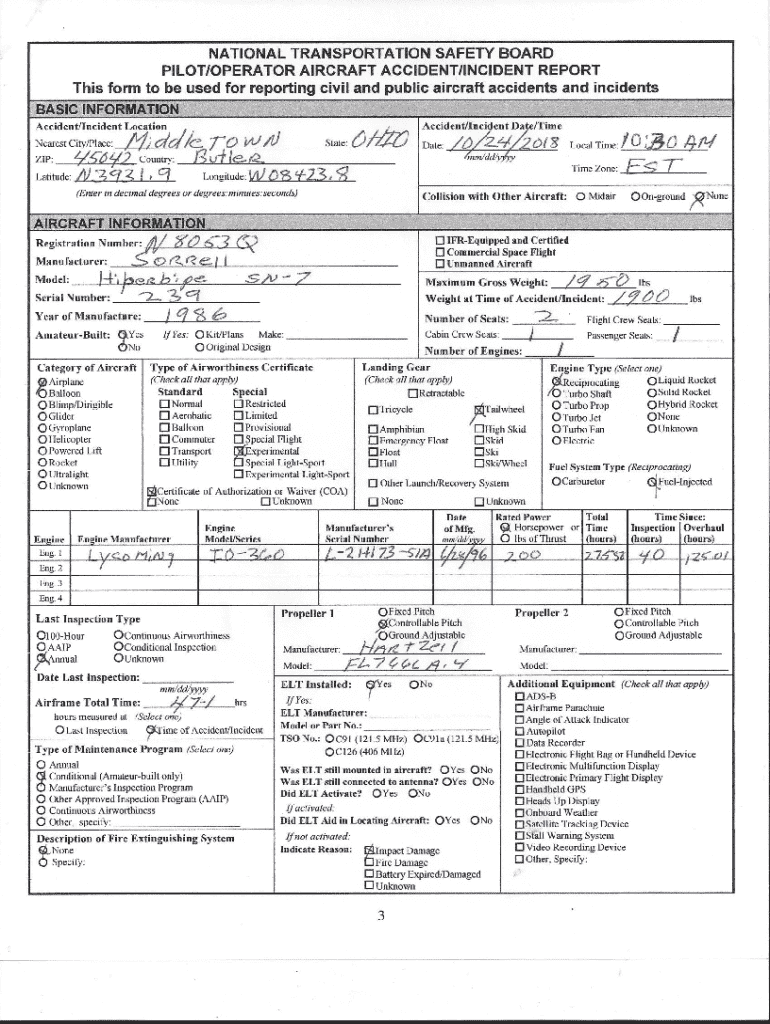 NATIONAL TRANSPORTATION SAFETY BOARD
PILOT/OPERATOR AIRCRAFT ACCIDENT/INCIDENT REPORT
This form to be used for reporting civil and public aircraft accidents and incidents
BASIC INFORMATION
Accident/Incident Location
Nearest City/Place: MiddleTOWN State: OHIO
ZIP: 45042 Country: Butler
Latitude: N3931.9 Longitude: W08423.8
(Enter in decimal degrees or degrees:minutes:seconds)
Accident/Incident Date/Time
Date: 10/24/2018 Local Time: 10:30 AM
mm/dd/yyyy
Time Zone: EST
Collision with Other Aircraft: Midair On-ground None
AIRCRAFT INFORMATION
Registration Number: N8053Q
Manufacturer: SORRell
Model: Hiperbipe SN-7
Serial Number: 239
Year of Manufacture: 1986
Amateur-Built: Yes If Yes: Kit/Plans Make:
No Original Design
IFR-Equipped and Certified
Commercial Space Flight
Unmanned Aircraft
Maximum Gross Weight: 1950 lbs
Weight at Time of Accident/Incident: 1900 lbs
Number of Seats: 2 Flight Crew Seats:
Cabin Crew Seats: 1 Passenger Seats: 1
Number of Engines: 1
Category of Aircraft
Airplane
Balloon
Blimp/Dirigible
Glider
Gyroplane
Helicopter
Powered Lift
Rocket
Ultralight
Unknown
Type of Airworthiness Certificate
(Check all that apply)
Standard Special
Normal Restricted
Aerobatic Limited
Balloon Provisional
Commuter Special Flight
Transport Experimental
Utility Special Light-Sport
Experimental Light-Sport
Certificate of Authorization or Waiver (COA)
None Unknown
Landing Gear
(Check all that apply)
Retractable
Tricycle Tailwheel
Amphibian High Skid
Emergency Float Skid
Float Ski
Hull Ski/Wheel
Other Launch/Recovery System
None Unknown
Engine Type (Select one)
Reciprocating Liquid Rocket
Turbo Shaft Solid Rocket
Turbo Prop Hybrid Rocket
Turbo Jet None
Turbo Fan Unknown
Electric
Fuel System Type (Reciprocating)
Carburetor Fuel-Injected
Engine Engine Manufacturer Engine Model/Series Manufacturer's Serial Number Date of Mfg. mm/dd/yyyy Rated Power Horsepower or lbs of Thrust Total Time (hours) Time Since: Inspection (hours) Overhaul (hours)
Eng. 1 LycoMing IO-360 200 40
Eng. 2
Eng. 3
Eng. 4
Last Inspection Type
100-Hour Continuous Airworthiness
AAIP Conditional Inspection
Annual Unknown
Date Last Inspection:
mm/dd/yyyy
Airframe Total Time: hrs
hours measured at (Select one)
Last Inspection Time of Accident/Incident
Type of Maintenance Program (Select one)
Annual
Conditional (Amateur-built only)
Manufacturer's Inspection Program
Other Approved Inspection Program (AAIP)
Continuous Airworthiness
Other, specify:
Description of Fire Extinguishing System
None
Specify:
Propeller 1 Fixed Pitch
Controllable Pitch
Ground Adjustable
Manufacturer: HARTZell
Model:
Propeller 2 Fixed Pitch
Controllable Pitch
Ground Adjustable
Manufacturer:
Model:
ELT Installed: Yes No
If Yes:
ELT Manufacturer:
Model or Part No.:
TSO No.: C91 (121.5 MHz) C91a (121.5 MHz)
C126 (406 MHz)
Was ELT still mounted in aircraft? Yes No
Was ELT still connected to antenna? Yes No
Did ELT Activate? Yes No
If activated:
Did ELT Aid in Locating Aircraft: Yes No
If not activated:
Indicate Reason: Impact Damage
Fire Damage
Battery Expired/Damaged
Unknown
Additional Equipment (Check all that apply)
ADS-B
Airframe Parachute
Angle of Attack Indicator
Autopilot
Data Recorder
Electronic Flight Bag or Handheld Device
Electronic Multifunction Display
Electronic Primary Flight Display
Handheld GPS
Heads Up Display
Onboard Weather
Satellite Tracking Device
Stall Warning System
Video Recording Device
Other, Specify:
3